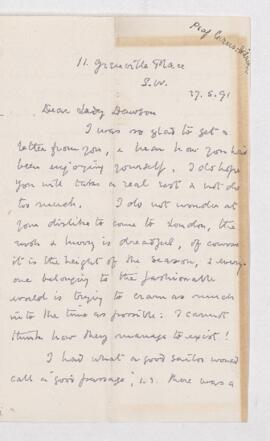 Prof
11. Grenville Place
S.W.
27.6.91
Dear Lady Dawson
I was so glad to get a
letter from you, & hear how you had
been enjoying yourself. I do hope
you will take a real rest & not do
too much. I do not wonder at
you dislike to come to London, the
rush & hurry is dreadful, of course
it is the height of the season, & every-
one belonging to the fashionable
world is trying to cram as much
into the time as possible: I cannot
think how they manage to exist!
I had what a good sailor would
call a "good passage", i.e. there was a